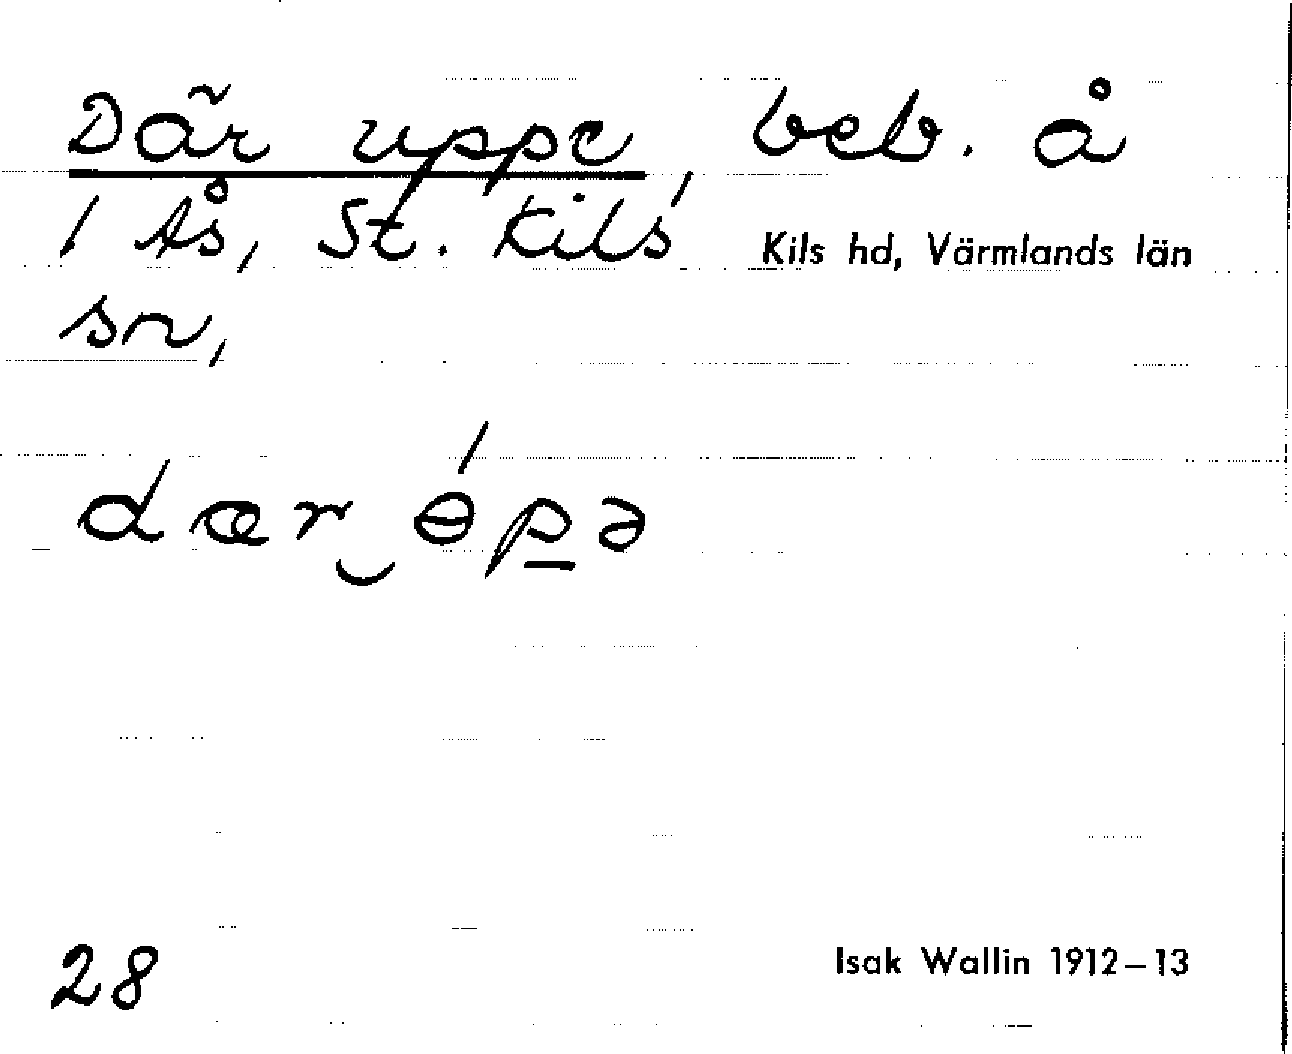 Där uppe, beb. å
1 Ås, St. Kils
Kils hd, Värmlands län
sn,
dær‿ɵ́p̲ə
28
Isak Wallin 1912–13